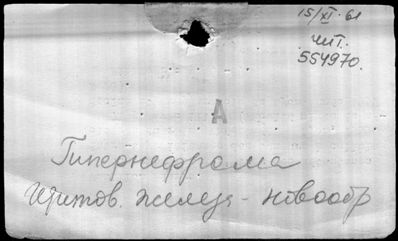 15/XI-61
чит.
554970.
А
Гипернефрома
Щитов. железа - новообр